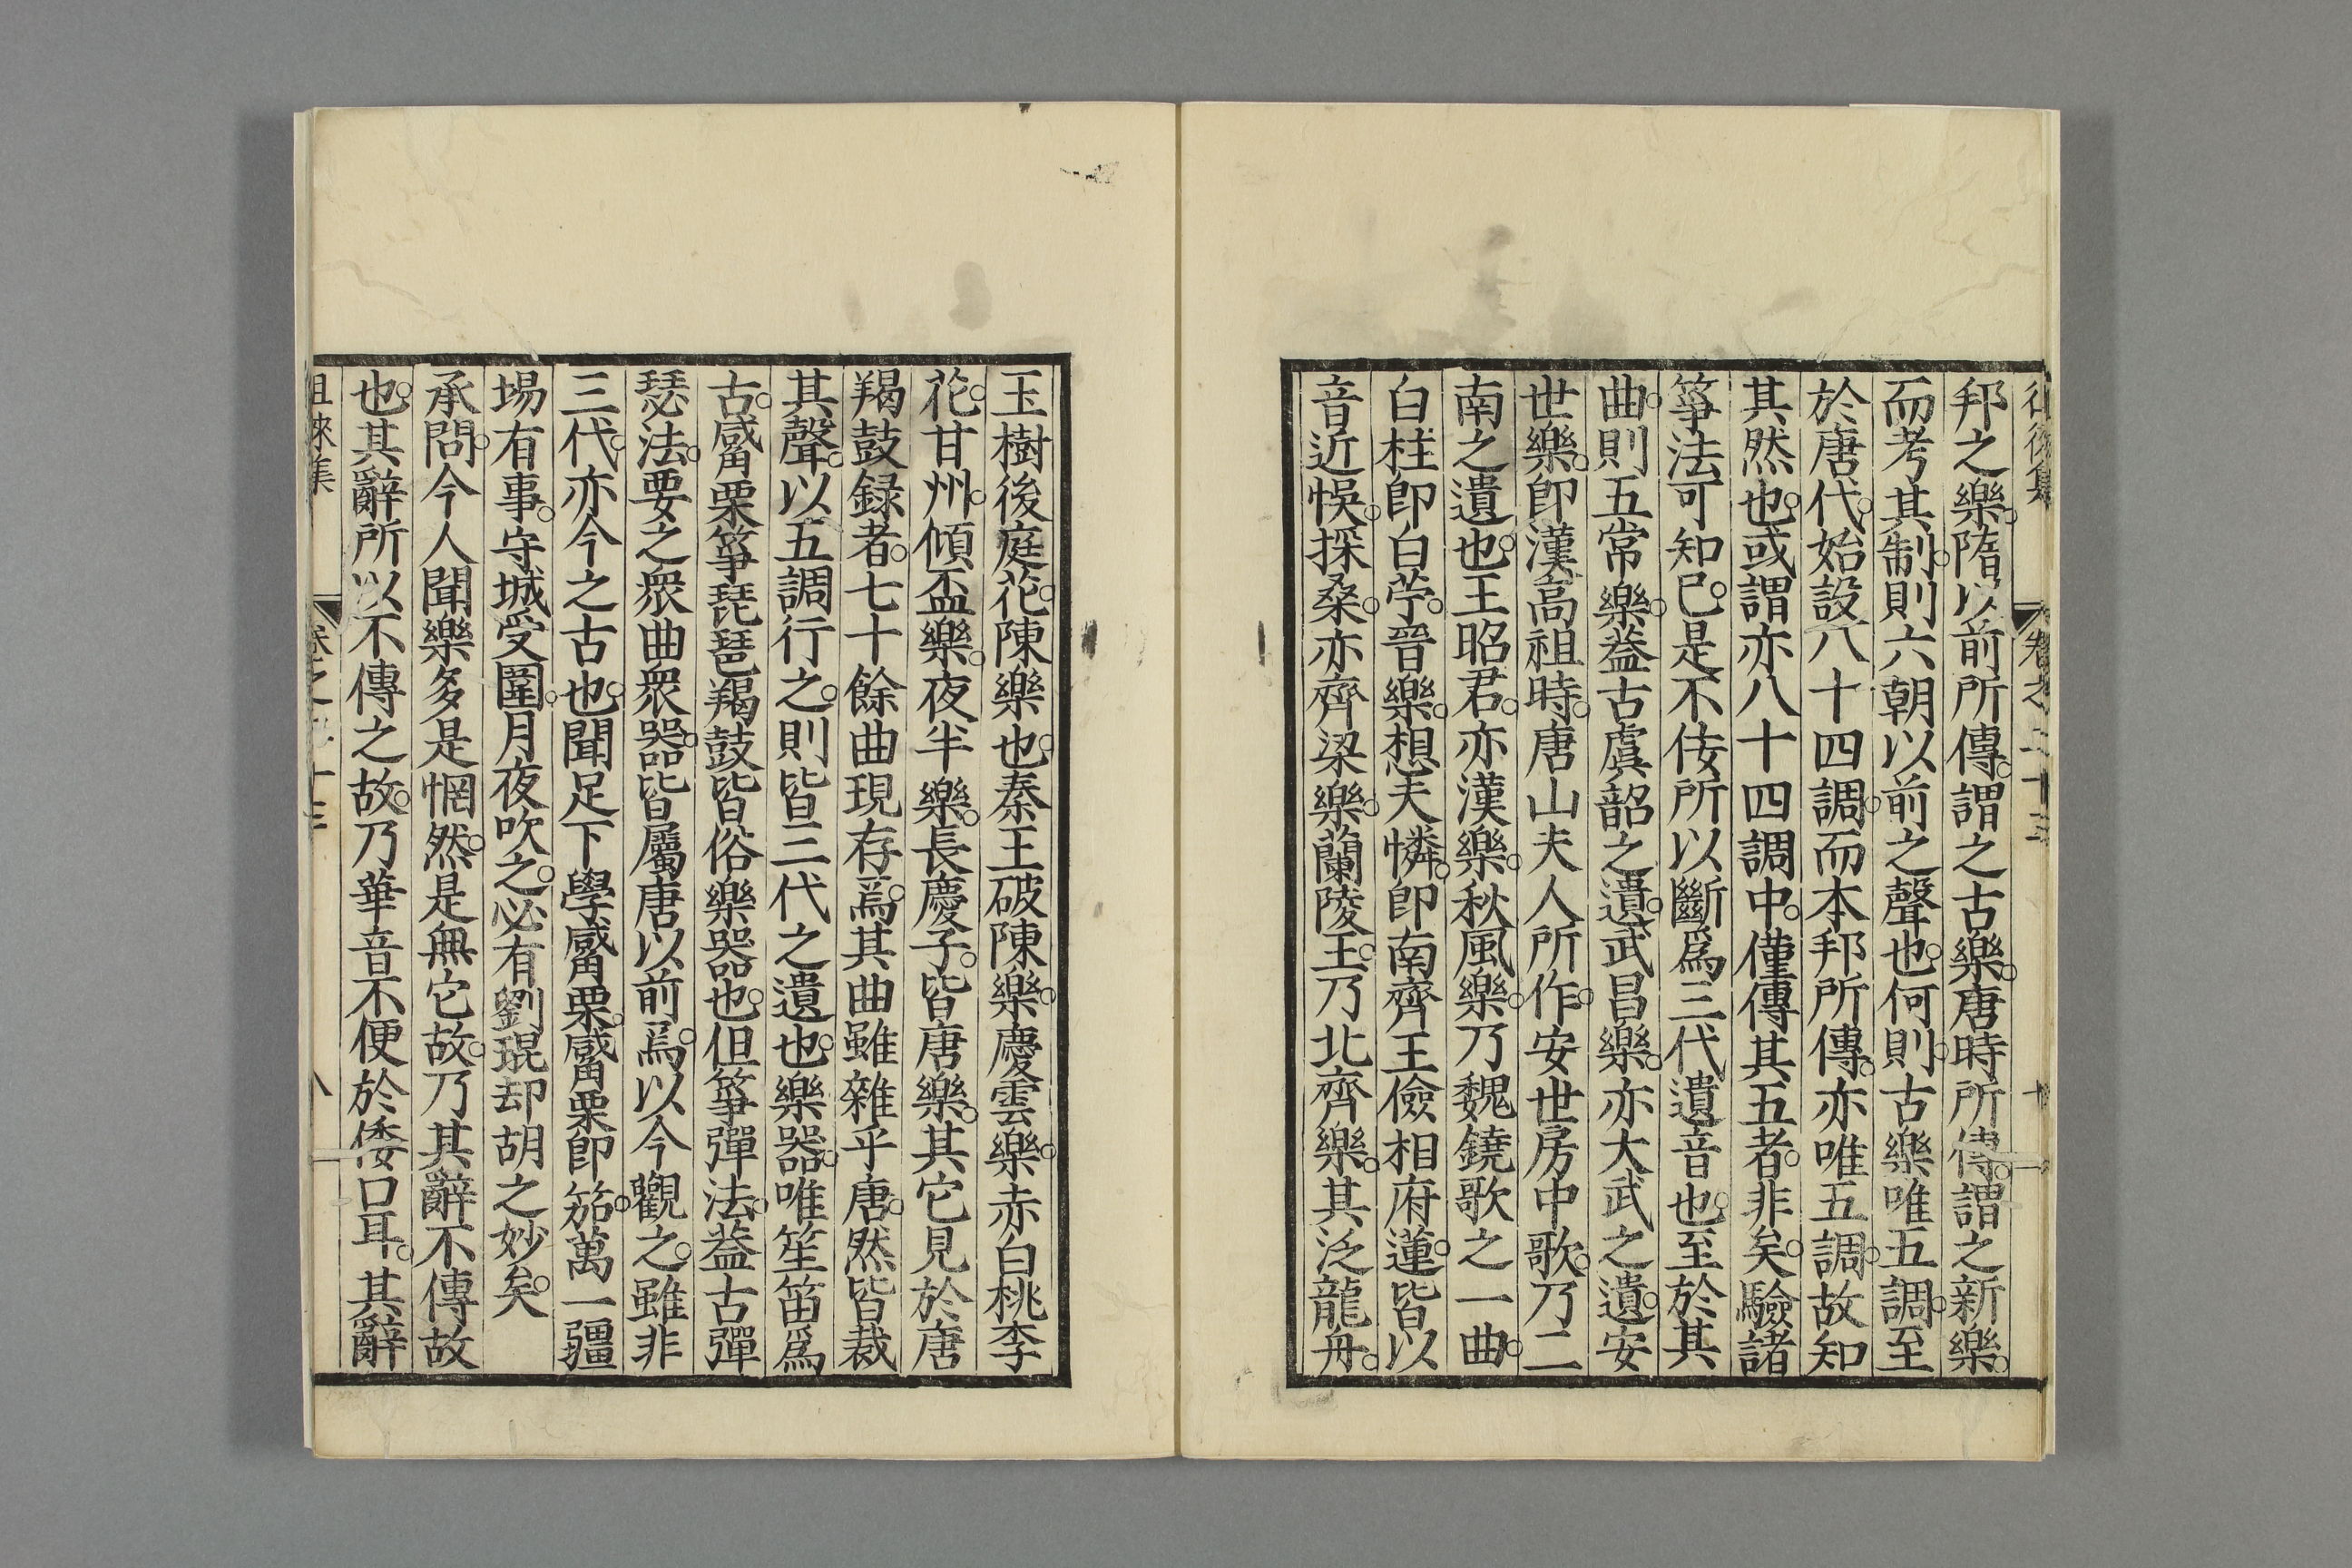 邦之樂。隋以前所傳。謂之古樂。唐時所傳。謂之新樂。
而考其制。則六朝以前之聲也。何則。古樂唯五調。至
於唐代。始設八十四調。而本邦所傳。亦唯五調。故知
其然也。或謂亦八十四調中。僅傳其五者。非矣。驗諸
箏法可知已。是不佞所以斷爲三代遺音也。至於其
曲。則五常樂。蓋古虞韶之遺。武昌樂。亦大武之遺。安
世樂。卽漢高祖時。唐山夫人所作。安世房中歌。乃二
南之遺也。王昭君。亦漢樂。秋風樂。乃魏鐃歌之一曲。
白柱卽白苧。晉樂。想夫憐。卽南齊王儉相府蓮。皆以
音近悞。採桑。亦齊梁樂。蘭陵王。乃北齊樂。其泛龍舟。
玉樹後庭花。陳樂也。秦王破陳樂。慶雲樂。赤白桃李
花。甘州。傾盃樂。夜半樂。長慶子。皆唐樂。其它見於唐
羯鼓録者。七十餘曲現存焉。其曲雖雜乎唐。然皆裁
其聲。以五調行之。則皆三代之遺也。樂器。唯笙笛爲
古。觱栗箏琵琶羯鼓皆俗樂器也。但箏彈法。蓋古彈
瑟法。要之衆曲衆器。皆屬唐以前焉。以今觀之。雖非
三代。亦今之古也。聞足下學觱栗。觱栗卽笳。萬一疆
場有事。守城受圍。月夜吹之。必有劉琨却胡之妙矣。
承問。今人聞樂多是惘然。是無它故。乃其辭不傳故
也。其辭所以不傳之故。乃華音不便於倭口耳。其辭
徂徠集
卷之二十三
八